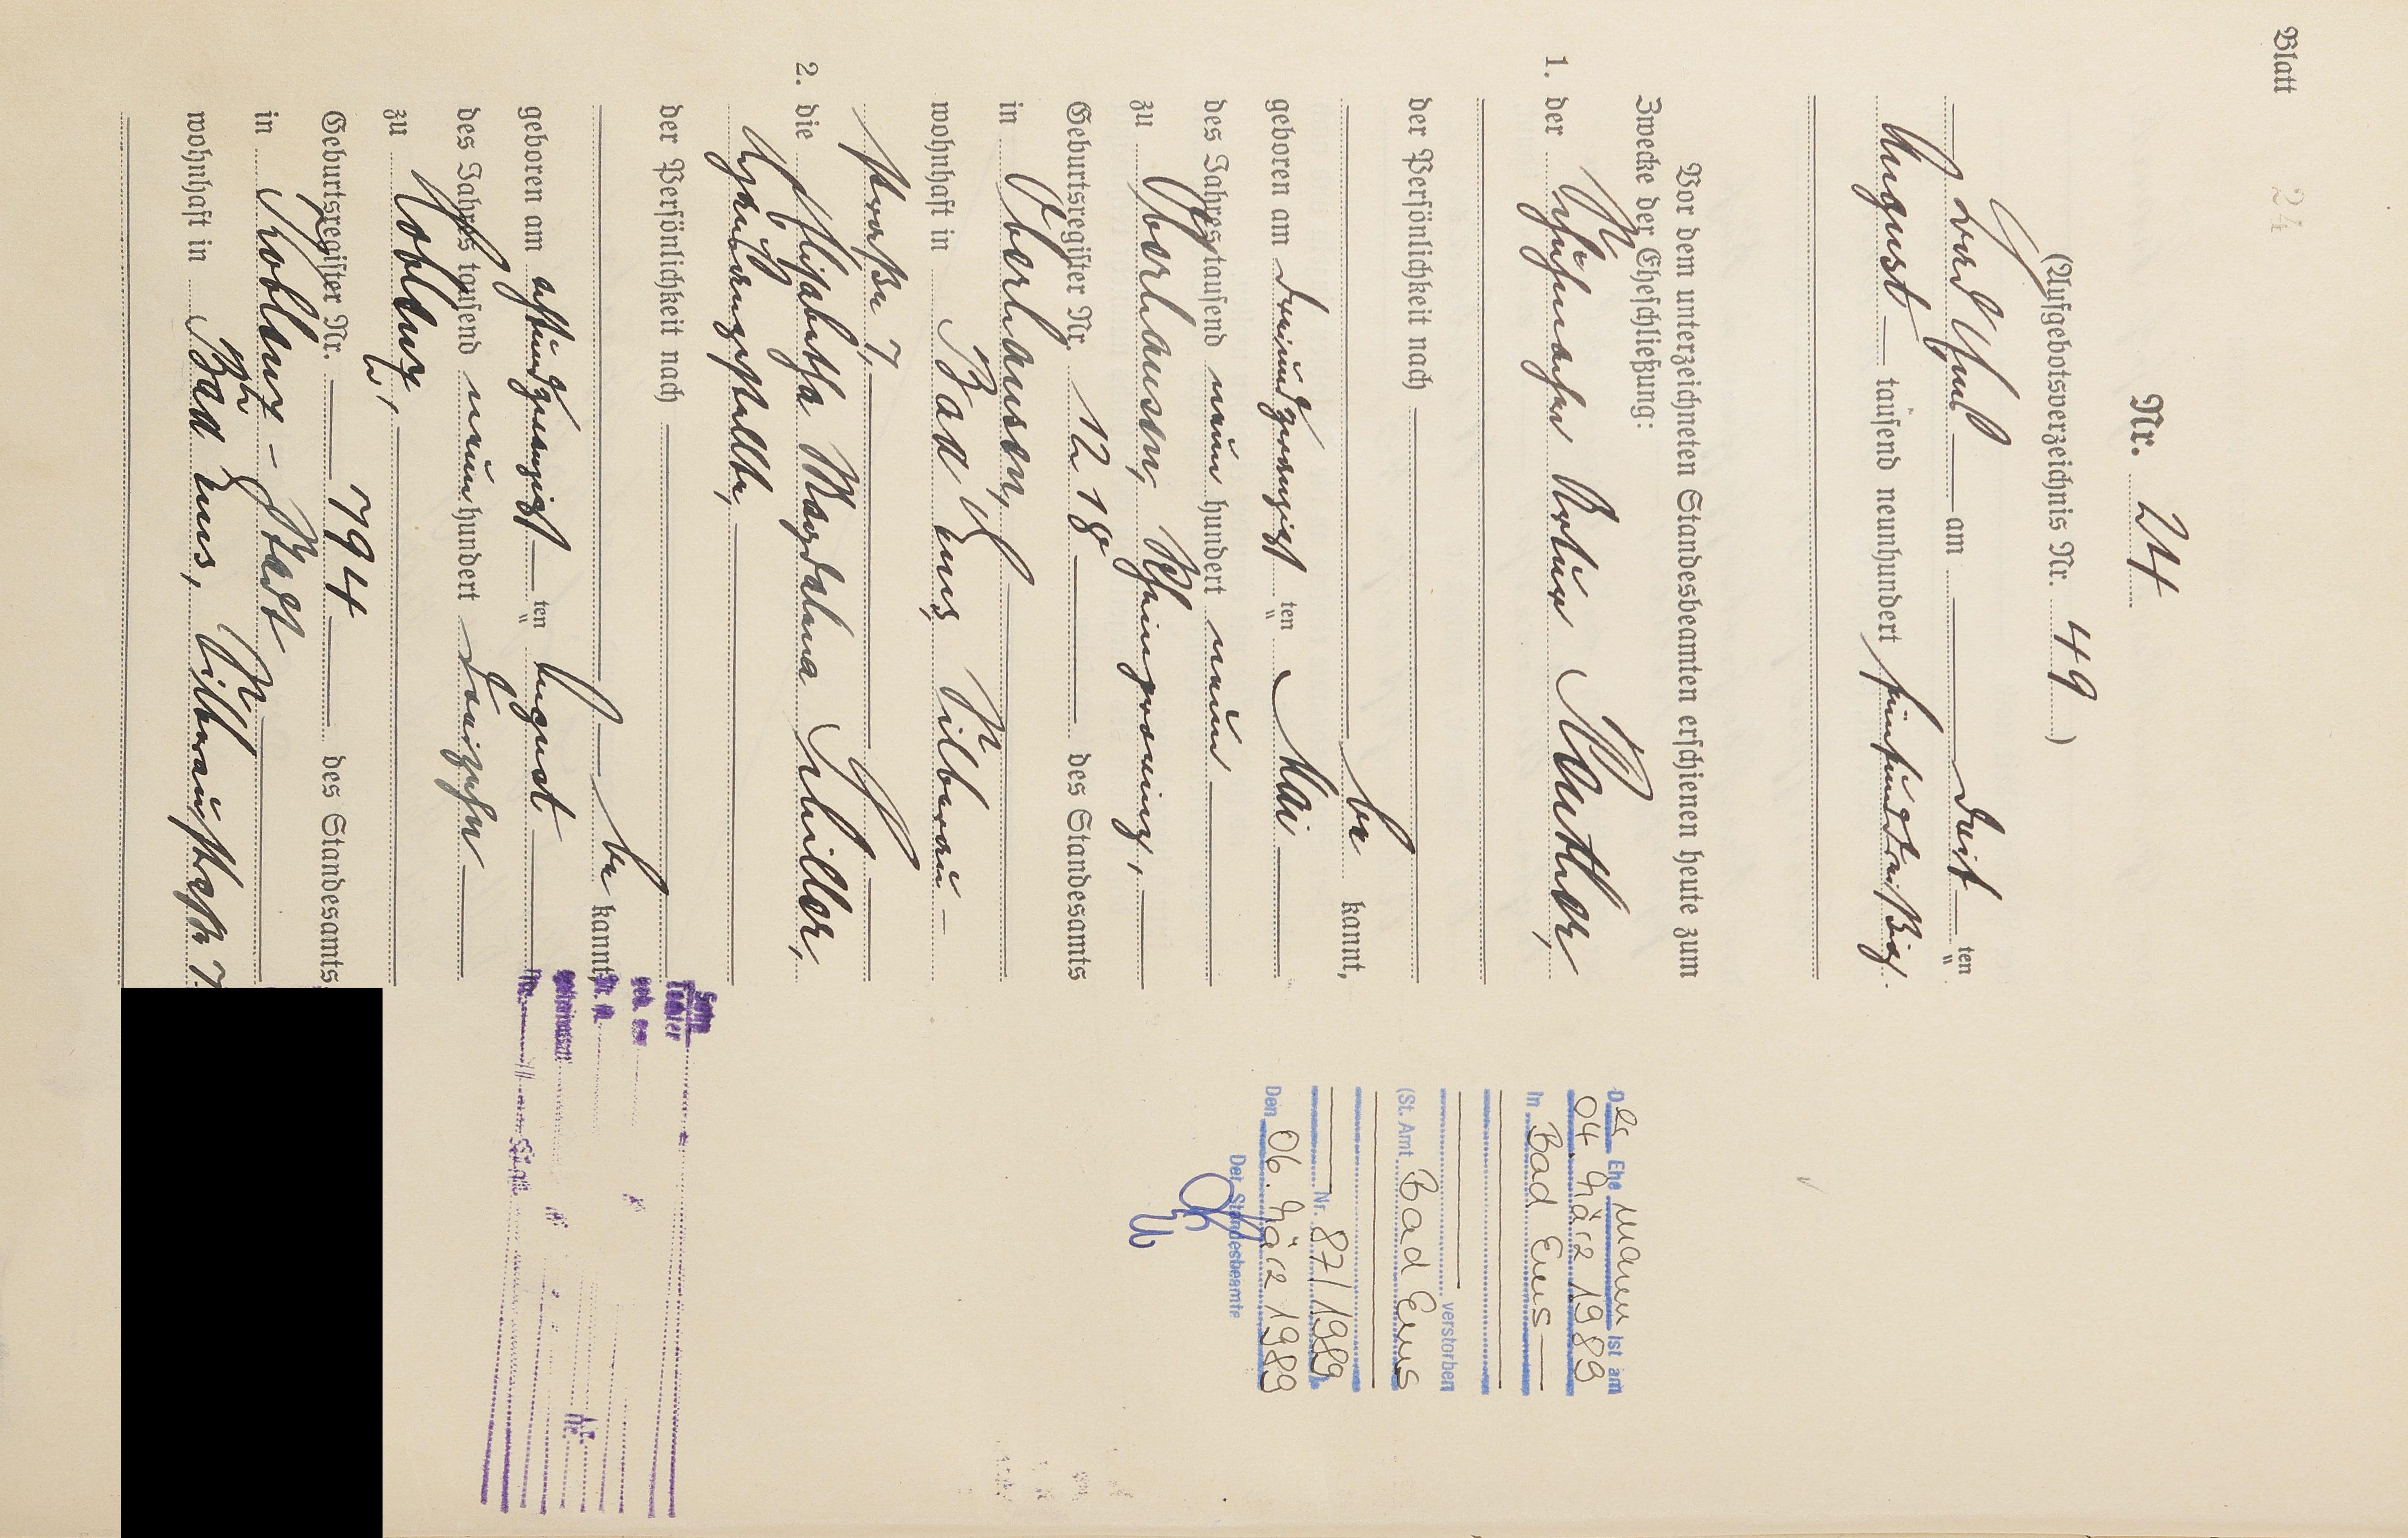 Blatt 24
Nr. 24
(Aufgebotsverzeichnis Nr. 49)
Bad Ems am drit ten
August tausend neunhundert fünfunddreißig.
Vor dem unterzeichneten Standesbeamten erschienen heute zum
Zwecke der Eheschließung:
1. der Schuhmacher Artur Kutter,
der Persönlichkeit nach
be kannt,
geboren am dreiundzwanzigst ten Mai
des Jahres tausend neun hundert neun
zu Oberhausen, Rheinprovinz,
Geburtsregister Nr. 1218 des Standesamts
in Oberhausen,
wohnhaft in Bad Ems, Silberau-
straße 7,
2. die Elisabetha Magdalena Schiller,
der Persönlichkeit nach
be kannt,
geboren am achtundzwanzigst ten August
des Jahres tausend neun hundert dreizehn
zu Koblenz,
Geburtsregister Nr. 794 des Standesamts
in Koblenz-Stadt
wohnhaft in Bad Ems, Silberaustraße 7.
Der Ehe mann ist am
04. März 1989
In Bad Ems
verstorben
(St. Amt Bad Ems
Nr. 87/1989)
Den 06. März 1989
Der Standesbeamte
Sohn
Tochter
geb. am
St. A.
Nr.
St. A.
Nr.